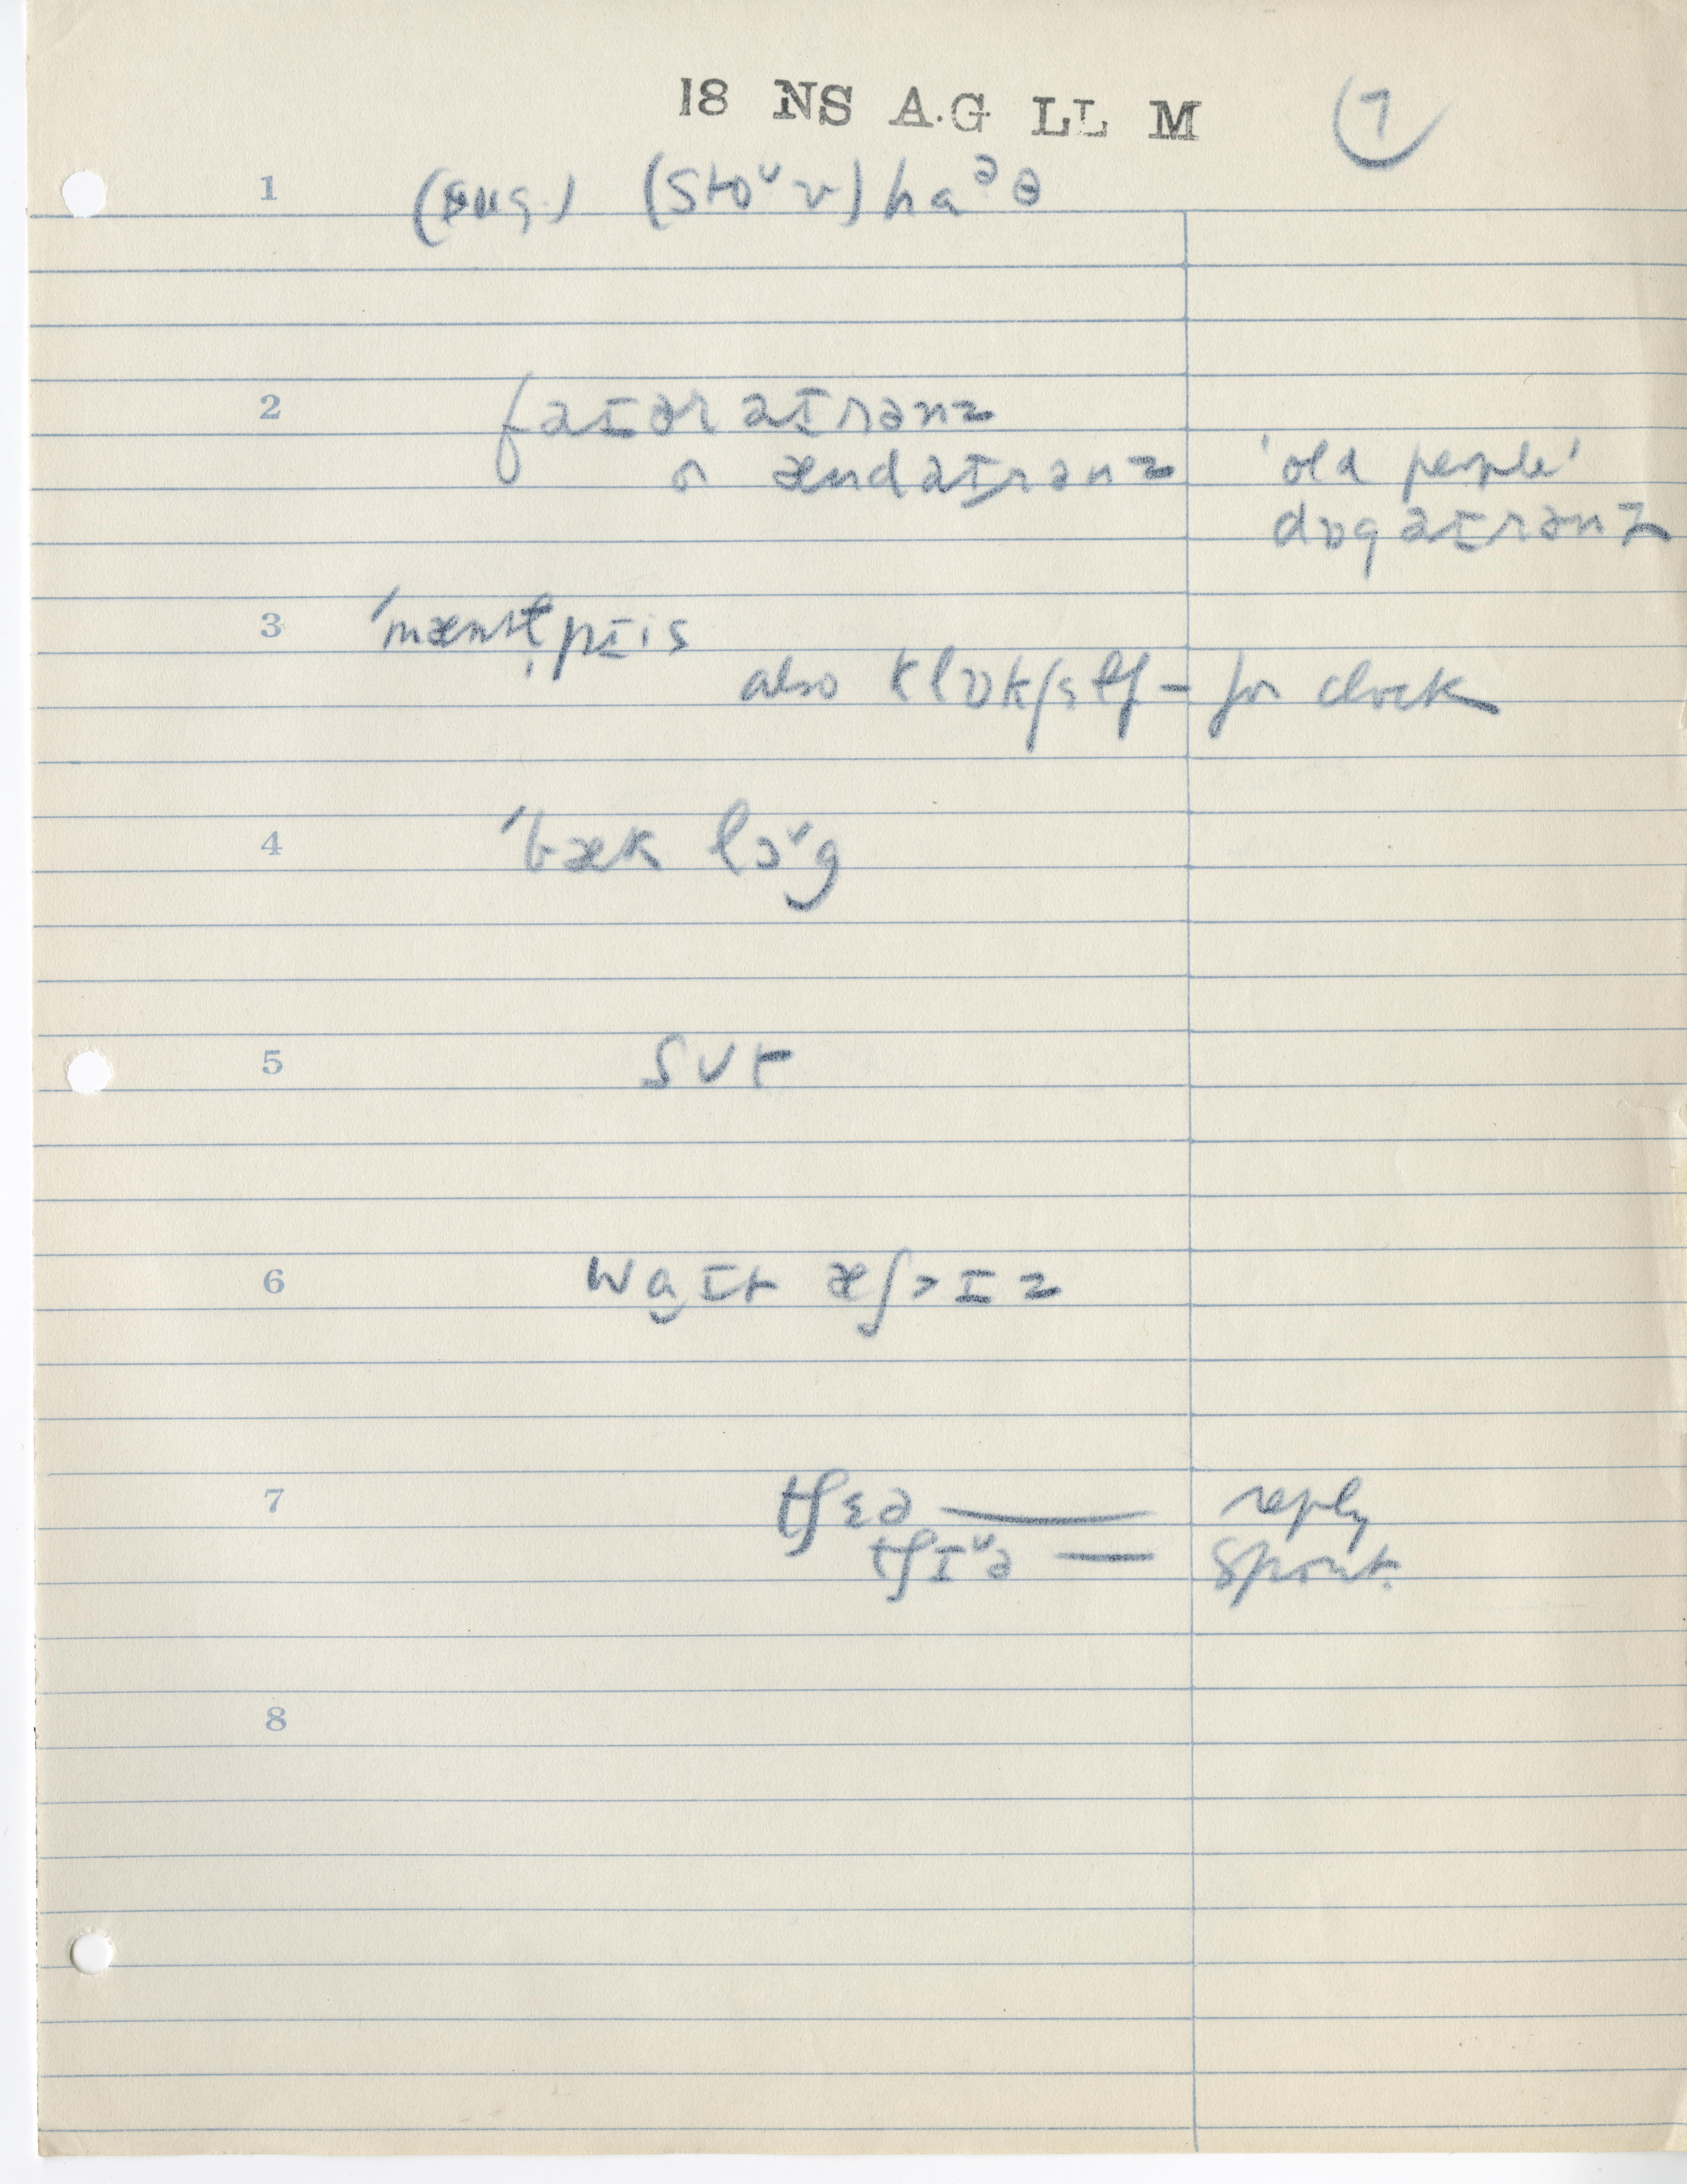 18 NS A.G LL M 7
1 (sug.) (stoᵛv) haᵊθ
2 faɪər aɪrənz
or ændaɪrənz 'old people'
dɒgaɪrənz
3 'mæntl̩pɪis
also klɒkʃɛlf – for clock
4 'bæk lɔᵛg
5 sʊt
6 wɑɪt æʃɪz
7 tʃɛə —— reply
tʃɪᵛə — spont.
8